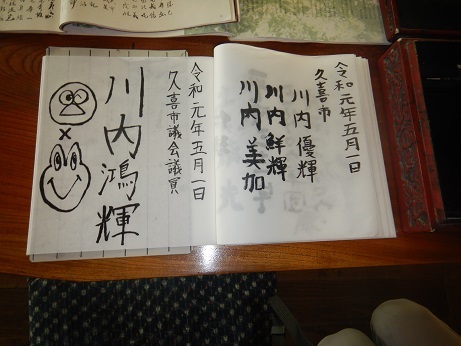 令和元年五月一日
久喜市
川内優輝
川内鮮輝
川内美加
令和元年五月一日
久喜市議会議員
川内鴻輝
×